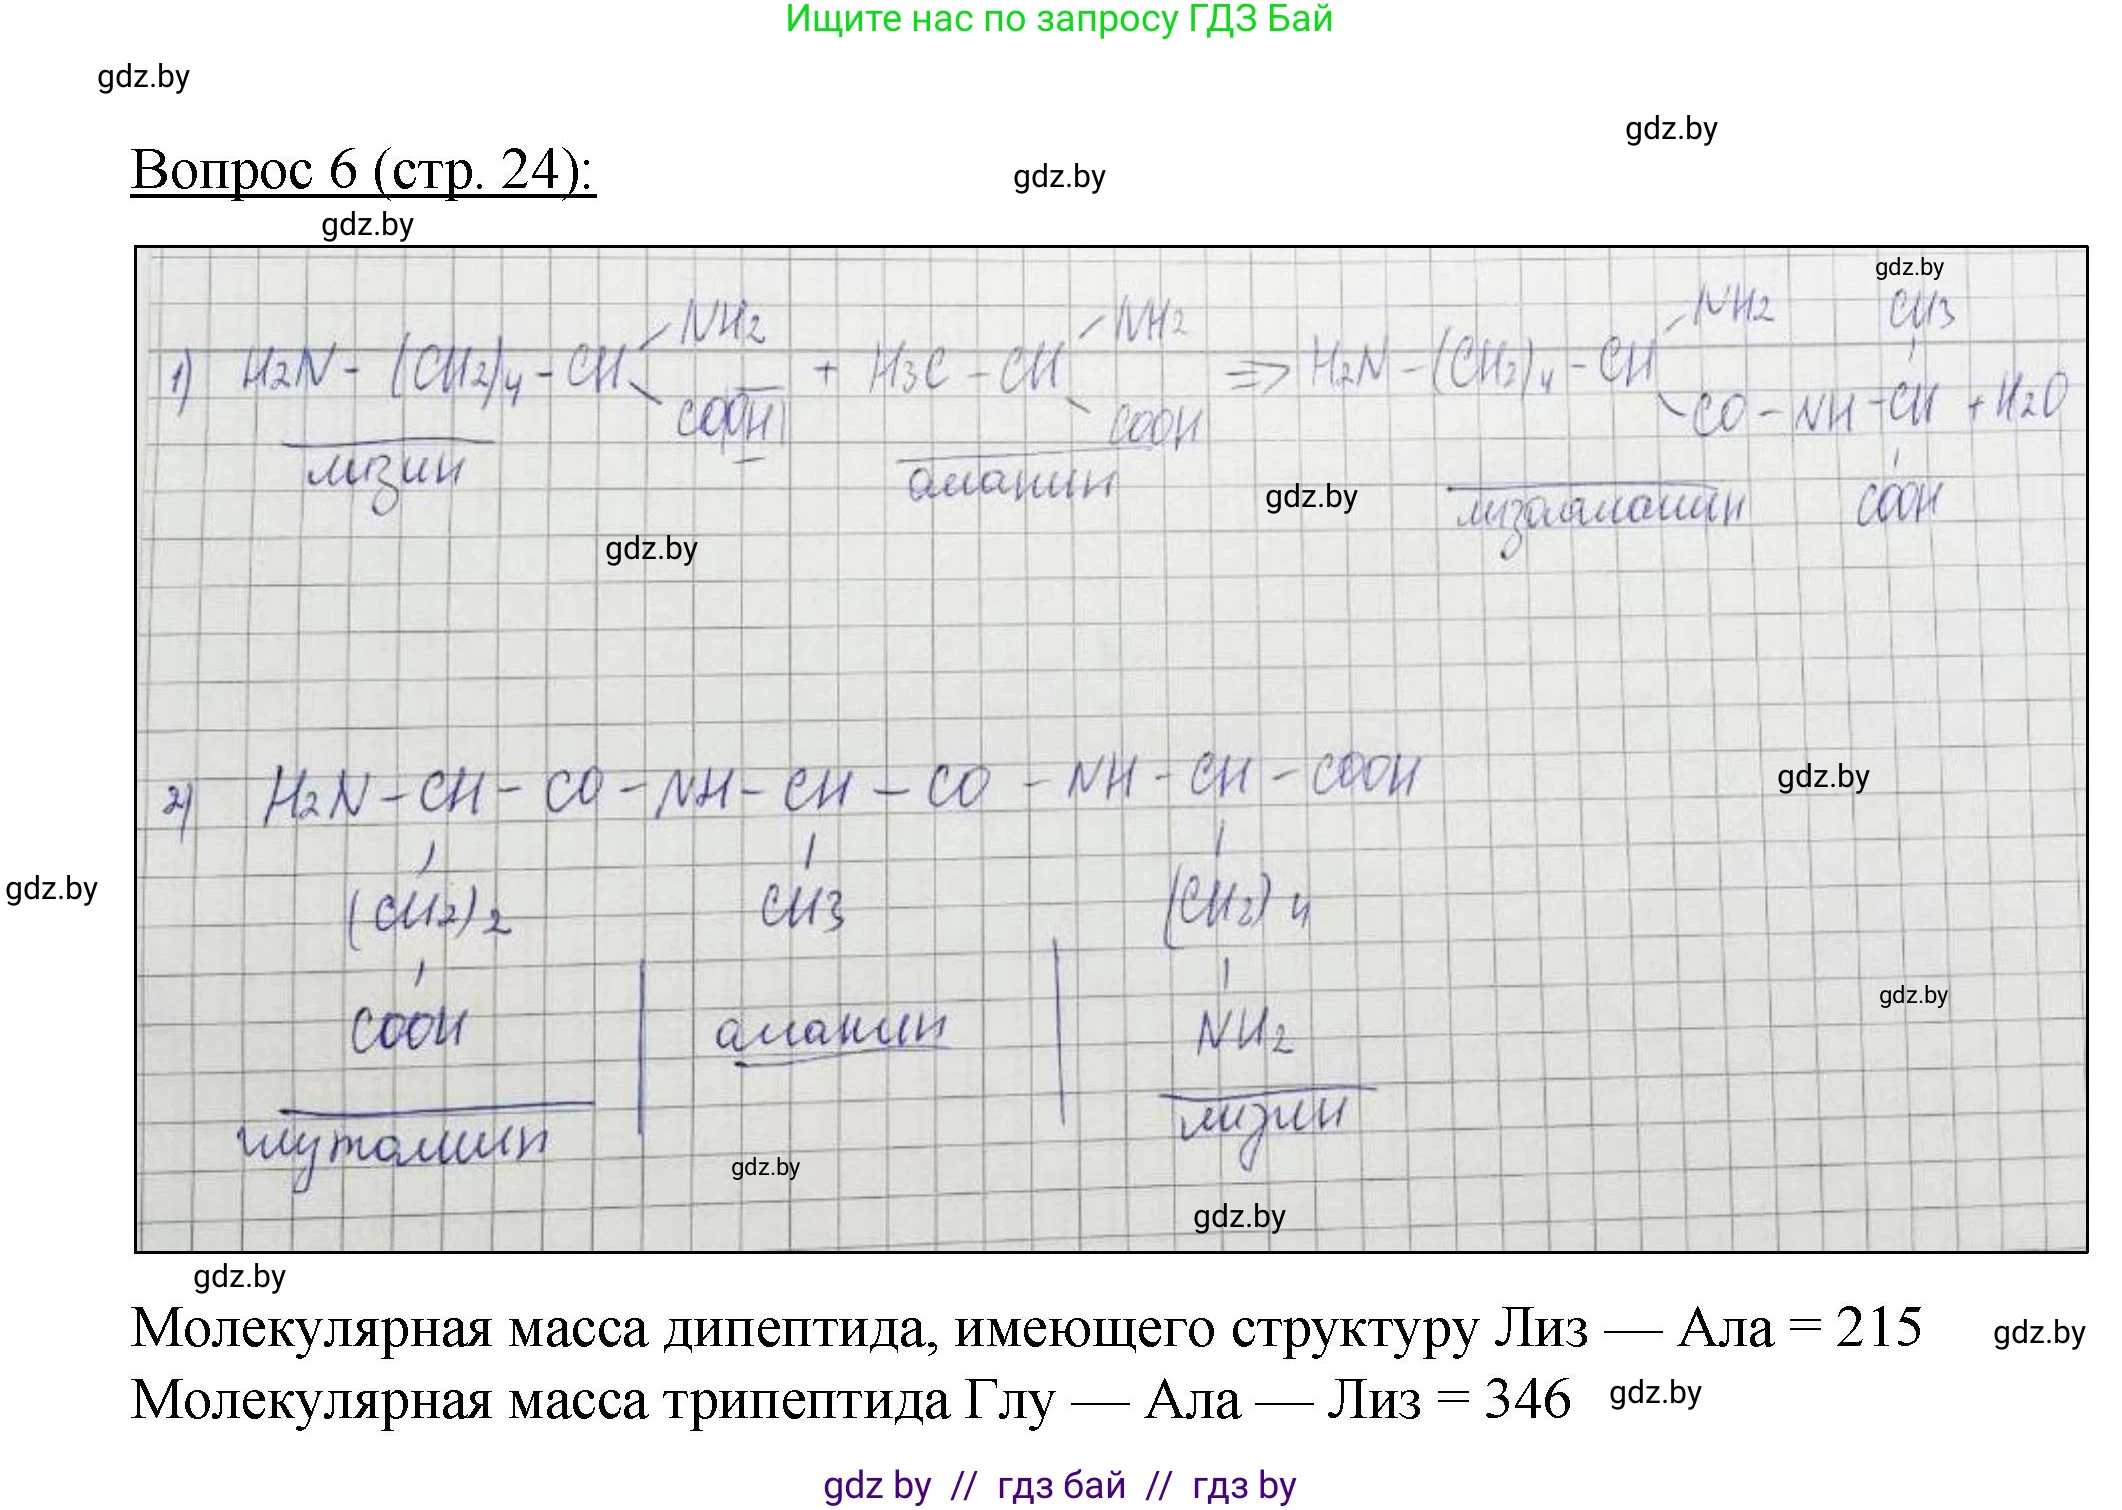 Ищите нас по запросу ГДЗ Бай
gdz.by
gdz.by
Вопрос 6 (стр. 24):
gdz.by
gdz.by
gdz.by
NH2 NH2 NH2 CH3
1) H2N - (CH2)4 - CH + H3C - CH => H2N - (CH2)4 - CH
COOH COOH CO - NH - CH + H2O
лизин аланин лизолаланин COOH
gdz.by
gdz.by
2) H2N - CH - CO - NH - CH - CO - NH - CH - COOH
gdz.by
gdz.by
(CH2)2 CH3 (CH2)4
COOH аланин NH2
gdz.by
глутамин лизин
gdz.by
gdz.by
gdz.by
Молекулярная масса дипептида, имеющего структуру Лиз — Ала = 215
gdz.by
Молекулярная масса трипептида Глу — Ала — Лиз = 346
gdz.by
gdz by // гдз бай // гдз by